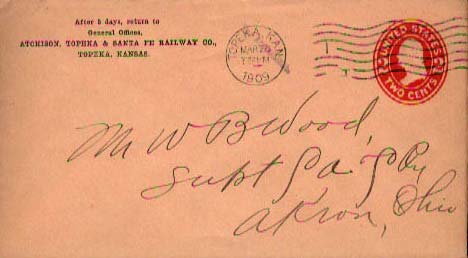 After 5 days, return to
General Offices,
ATCHISON, TOPEKA & SANTA FE RAILWAY CO.,
TOPEKA, KANSAS.
TOPEKA, KAN.
MAR 20
1909
UNITED STATES
TWO CENTS
Mr W B Wood,
Supt
Akron, Ohio